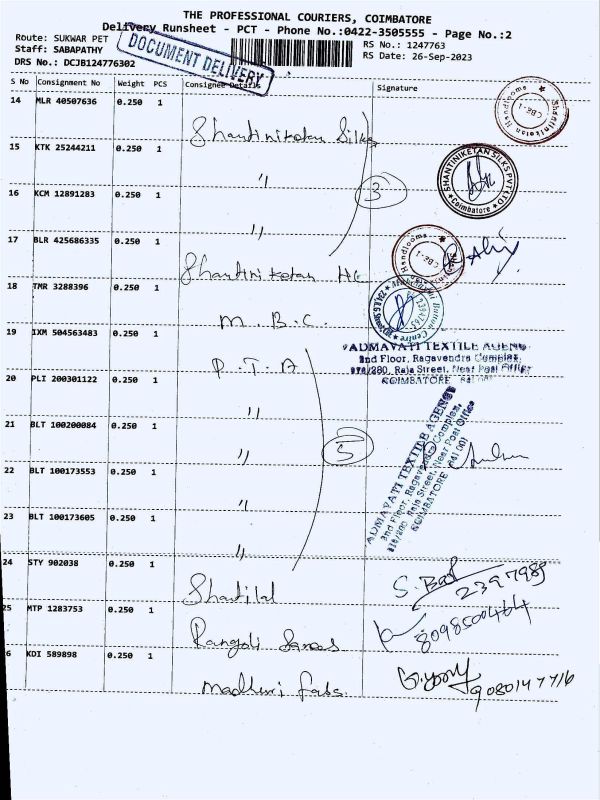 THE PROFESSIONAL COURIERS, COIMBATORE
Delivery Runsheet - PCT - Phone No.:0422-3505555 - Page No.:2
Route: SUKWAR PET
RS No.: 1247763
Staff: SABAPATHY
RS Date: 26-Sep-2023
DRS No.: DCJB124776302
DOCUMENT DELIVERY
S No Consignment No Weight PCS Consignee Details Signature
14 MLR 40507636 0.250 1 Shantiniketan Silks
Shantiniketan Handlooms CBE-1
15 KTK 25244211 0.250 1 "
SHANTINIKETAN SILKS PVT LTD Coimbatore
16 KCM 12891283 0.250 1 "
3
17 BLR 425686335 0.250 1 Shantiniketan HL
Handlooms CBE-1
18 TMR 3288396 0.250 1 M. B. C.
19 IXM 504563483 0.250 1 P. T. A
PADMAVATI TEXTILE AGENC
2nd Floor, Ragavendra Complex,
Raja Street, Near Post Office
COIMBATORE
20 PLI 200301122 0.250 1 "
21 BLT 100200084 0.250 1 "
5
PADMAVATI TEXTILE AGENCY
2nd Floor, Ragavendra Complex,
Raja Street, Near Post Office
COIMBATORE 641 001
22 BLT 100173553 0.250 1 "
23 BLT 100173605 0.250 1 "
24 STY 902038 0.250 1 Shantilal
2397989
25 MTP 1283753 0.250 1 Rangoli Sarees
8098500464
6 KDI 589898 0.250 1 Madhuri Fabs
9080147716